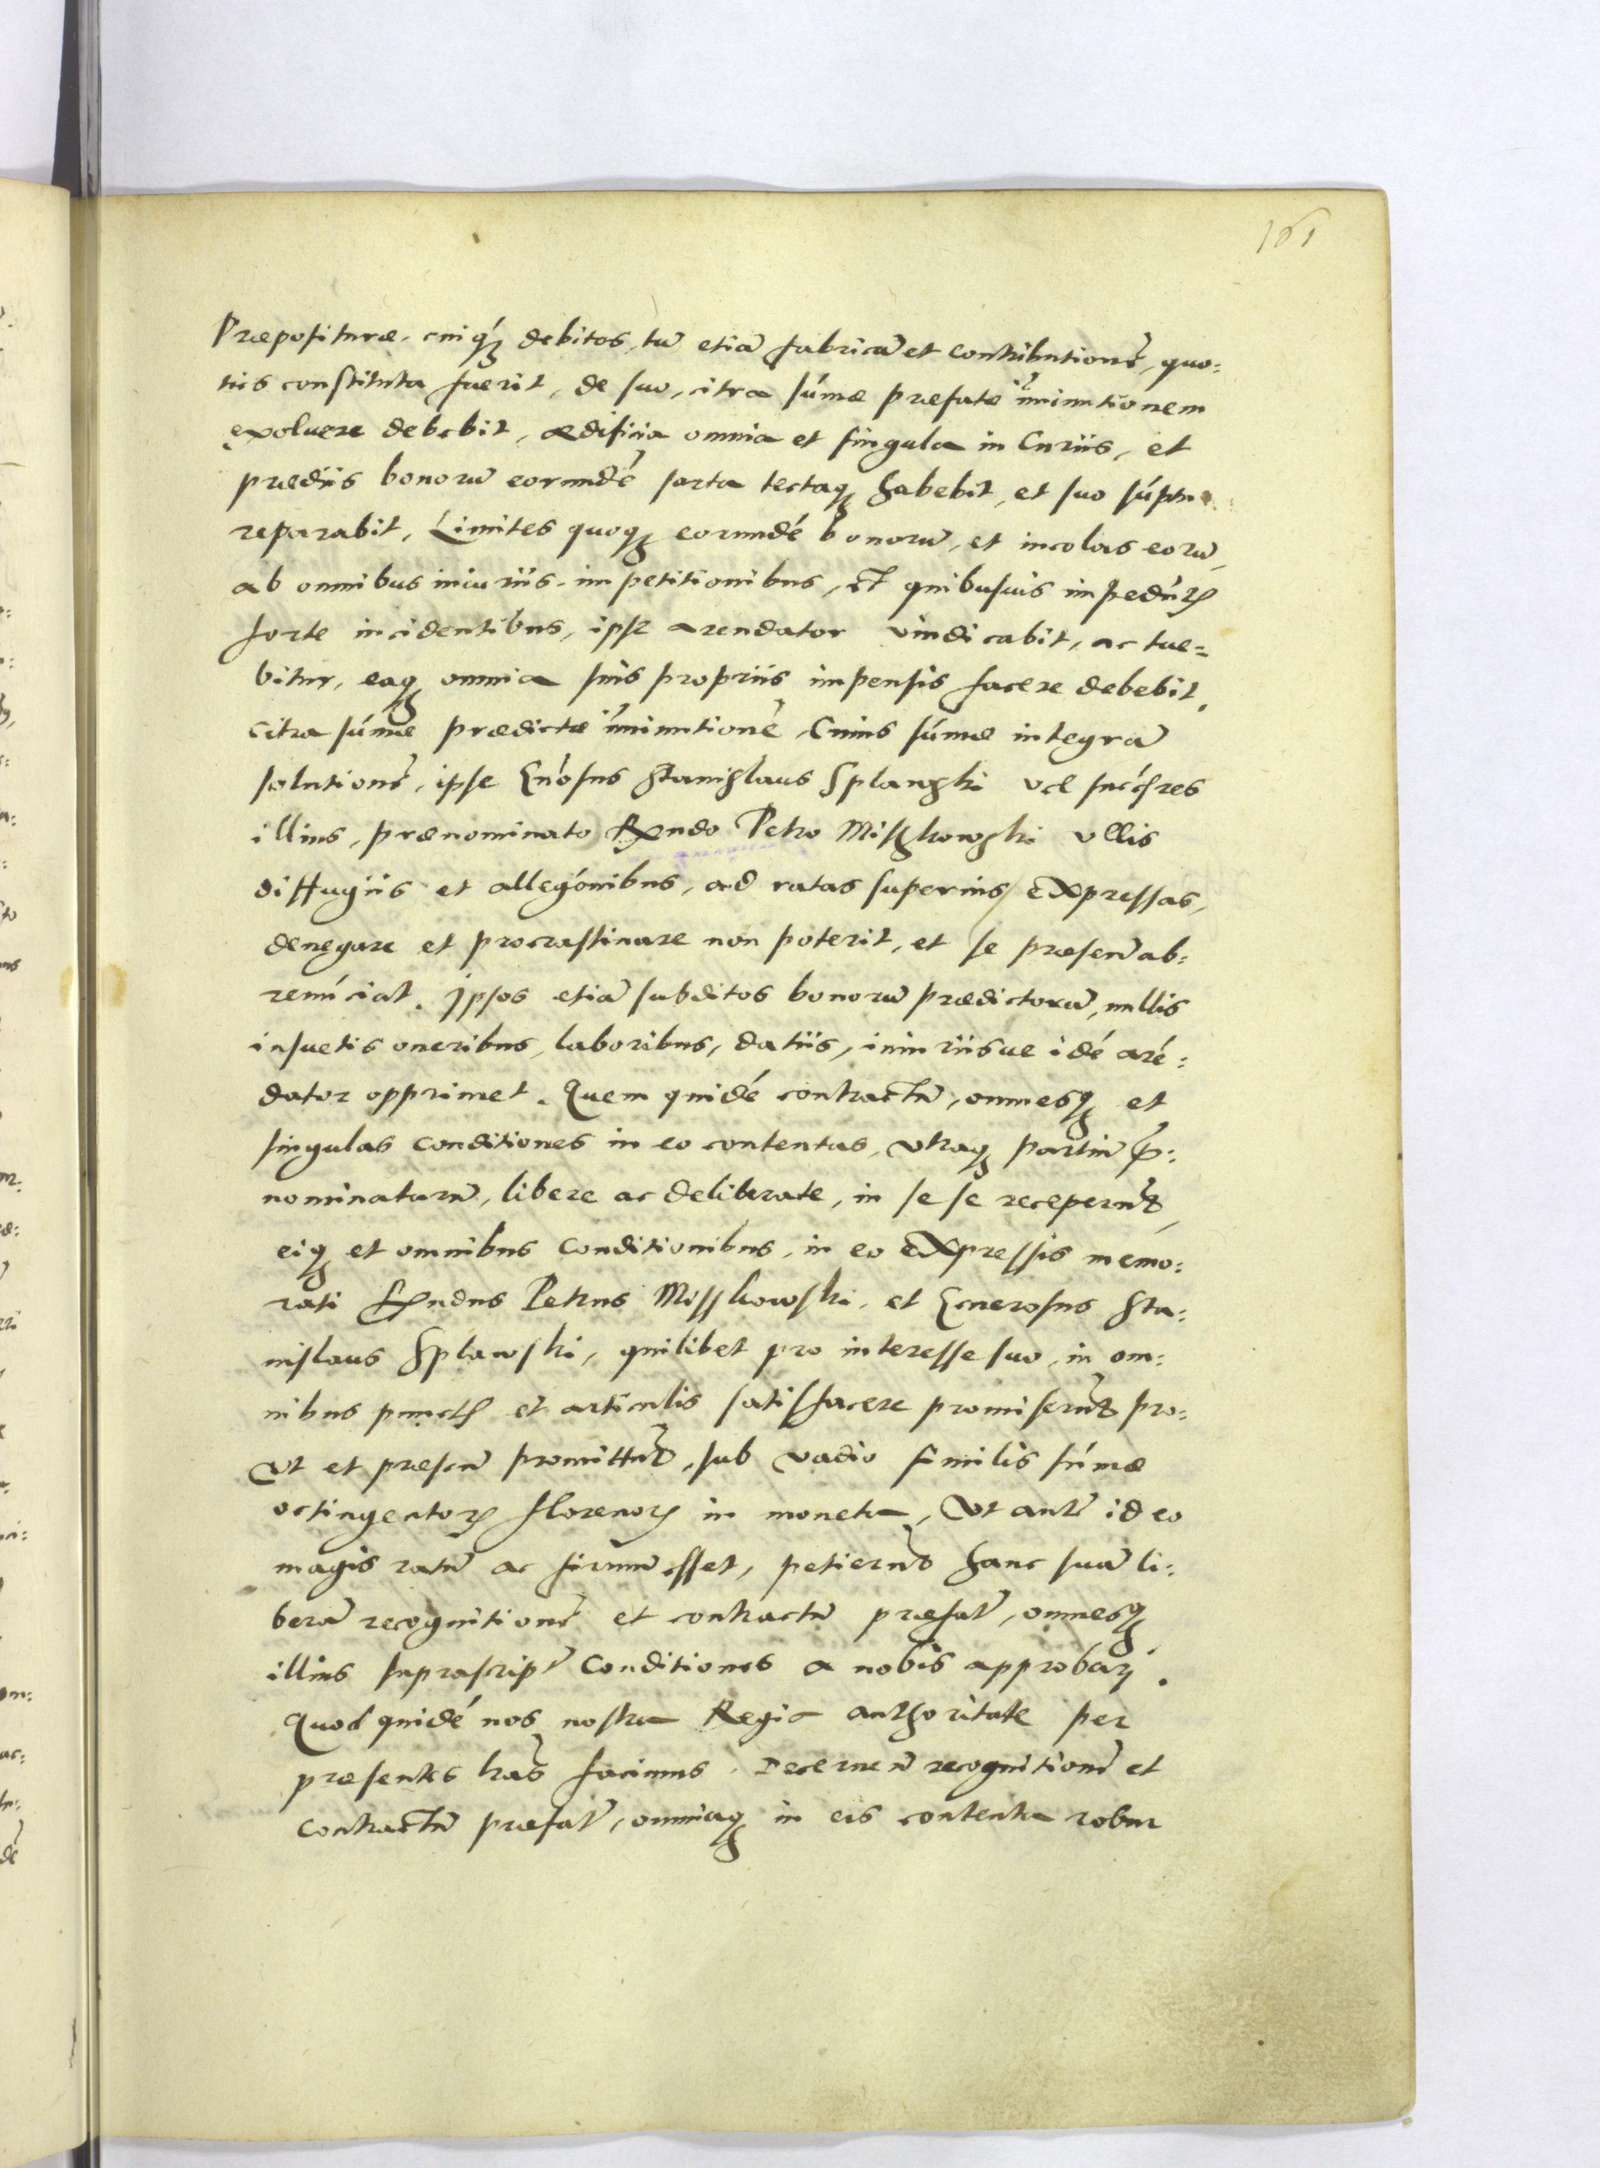 161
Præposituræ, cuiq́ꝫ debitos, tũ etiã fabricã et contributionẽ, quo:
ties constituta fuerit, de suo, citra súmæ præfatæ iminutionem
exoluere debebit, ædificia omnia et singula in Curiis, et
prædiis bonorũ eorundé sarta tectaqꝫ habebit, et suo súptu
reparabit, Limites quoqꝫ eorundé bonorũ, et incolas eorũ,
ab omnibus iniuriis, impetitionibus, et quibusuis impedítꝫ
forte incidentibus, ipse arendator vindicabit, ac tue=
bitur, eaqꝫ omnia suis propriis impensis facere debebit,
citra súmæ prædictæ iminutionẽ, Cuius súmæ integrã
solutionẽ, ipse Gńosus Stanislaus Splawski vel succ̃sores
illius, prænominato Rṇdo Petro Miszkowski vllis
diffugiis et alleg̃onibus, ad ratas superius expressas,
denegare et procrastinare non poterit, et se præsenꝰ ab:
renúciat. Ipsos etiã subditos bonorũ prædictorũ, nullis
insuetis oneribus, laboribus, datiis, iniuriisue idé aré:
dator opprimet. Quem quidé contractũ, omnesqꝫ et
singulas conditiones in eo contentas, vtraqꝫ partiũ p̃:
nominatarũ, libere ac deliberate, in se se receperũt,
eiqꝫ et omnibus conditionibus, in eo expressis memo:
rati Rṇdus Petrus Misskowski, et Generosus Sta:
nislaus Splawski, quilibet pro interesse suo, in om:
nibus punctꝭ et articulis satisfacere promiserũt pro:
vt et præsenꝰ promittũt, sub vadio similis súmæ
octingentorꝫ florenorꝫ in moneta, Vt autẽ id eo
magis ratũ ac firmũ esset, petierũt hanc suã li:
berã recognitionẽ et contractũ præfatũ, omnesqꝫ
illius suprascripꝰ conditiones a nobis approbari.
Quod quidé nos nostra Regia authoritate per
præsentes l̃ras facimus, Decernenꝰ recognitionẽ et
contractũ præfatũ, omniaqꝫ in eis contenta robur